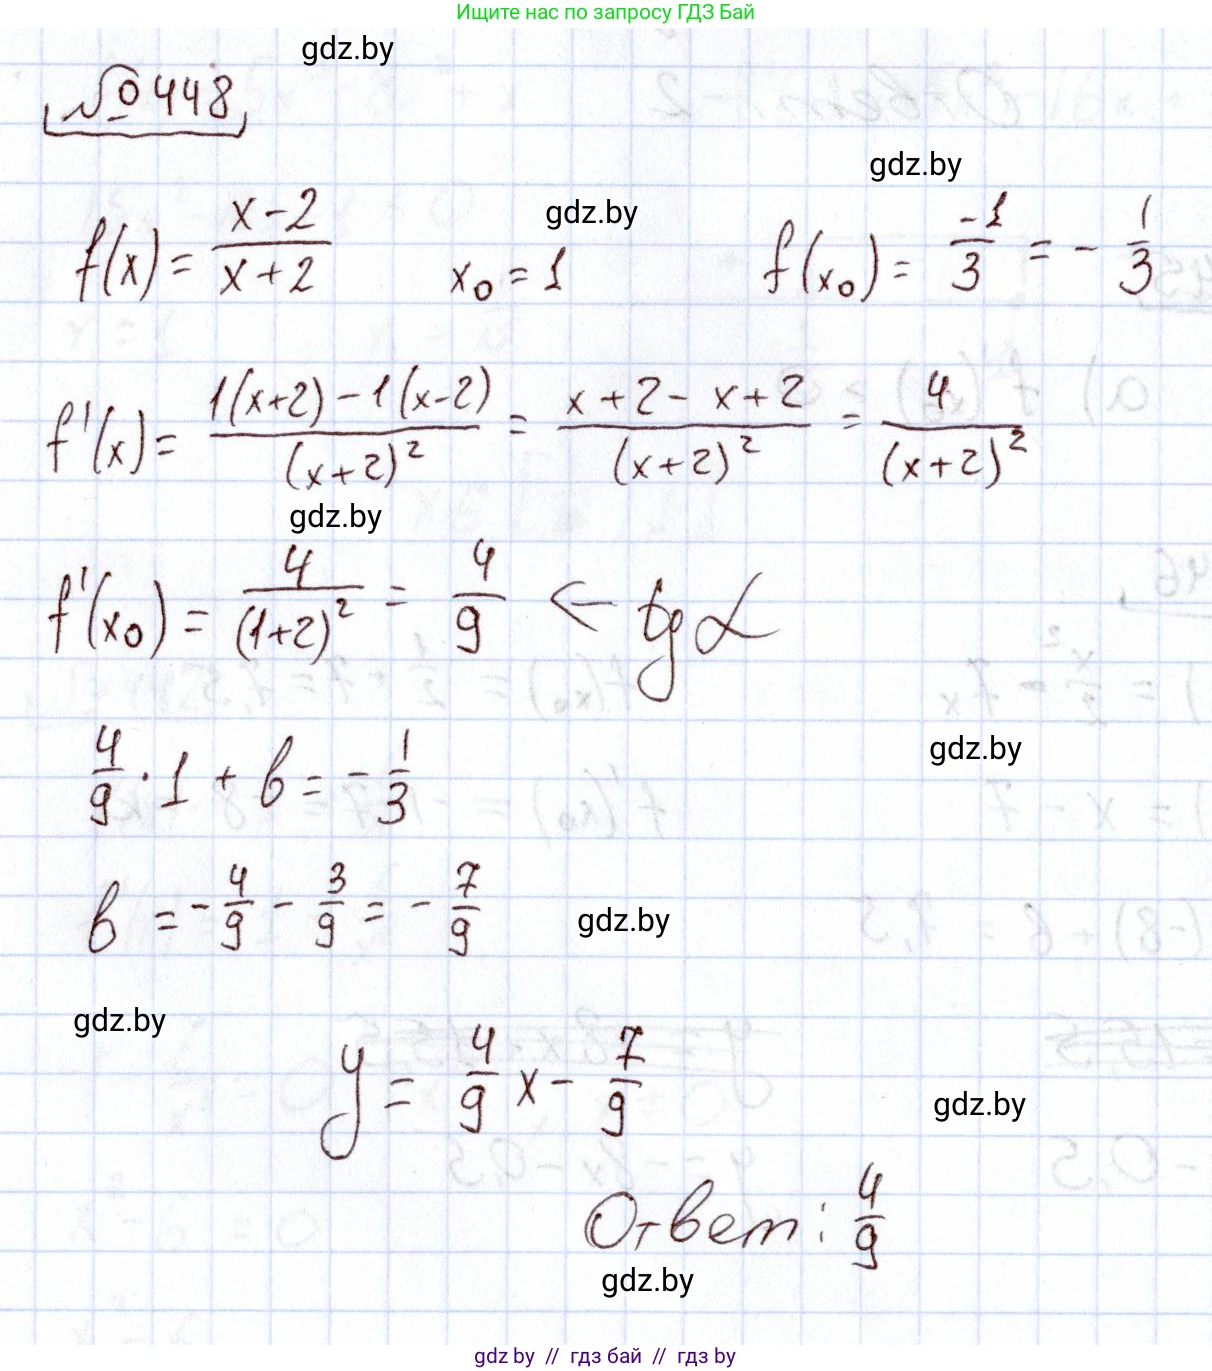 Ищите нас по запросу ГДЗ Бай
gdz.by
№ 448
gdz.by
f(x) = (x-2)/(x+2) gdz.by x₀ = 1 f(x₀) = -1/3 = - 1/3
f'(x) = (1(x+2) - 1(x-2))/(x+2)² = (x+2-x+2)/(x+2)² = 4/(x+2)²
gdz.by
f'(x₀) = 4/(1+2)² = 4/9 ← tg α
gdz.by
4/9 · 1 + в = - 1/3
в = - 4/9 - 3/9 = - 7/9 gdz.by
gdz.by
y = 4/9 x - 7/9
gdz.by
Ответ: 4/9
gdz.by
gdz.by // гдз бай // гдз by